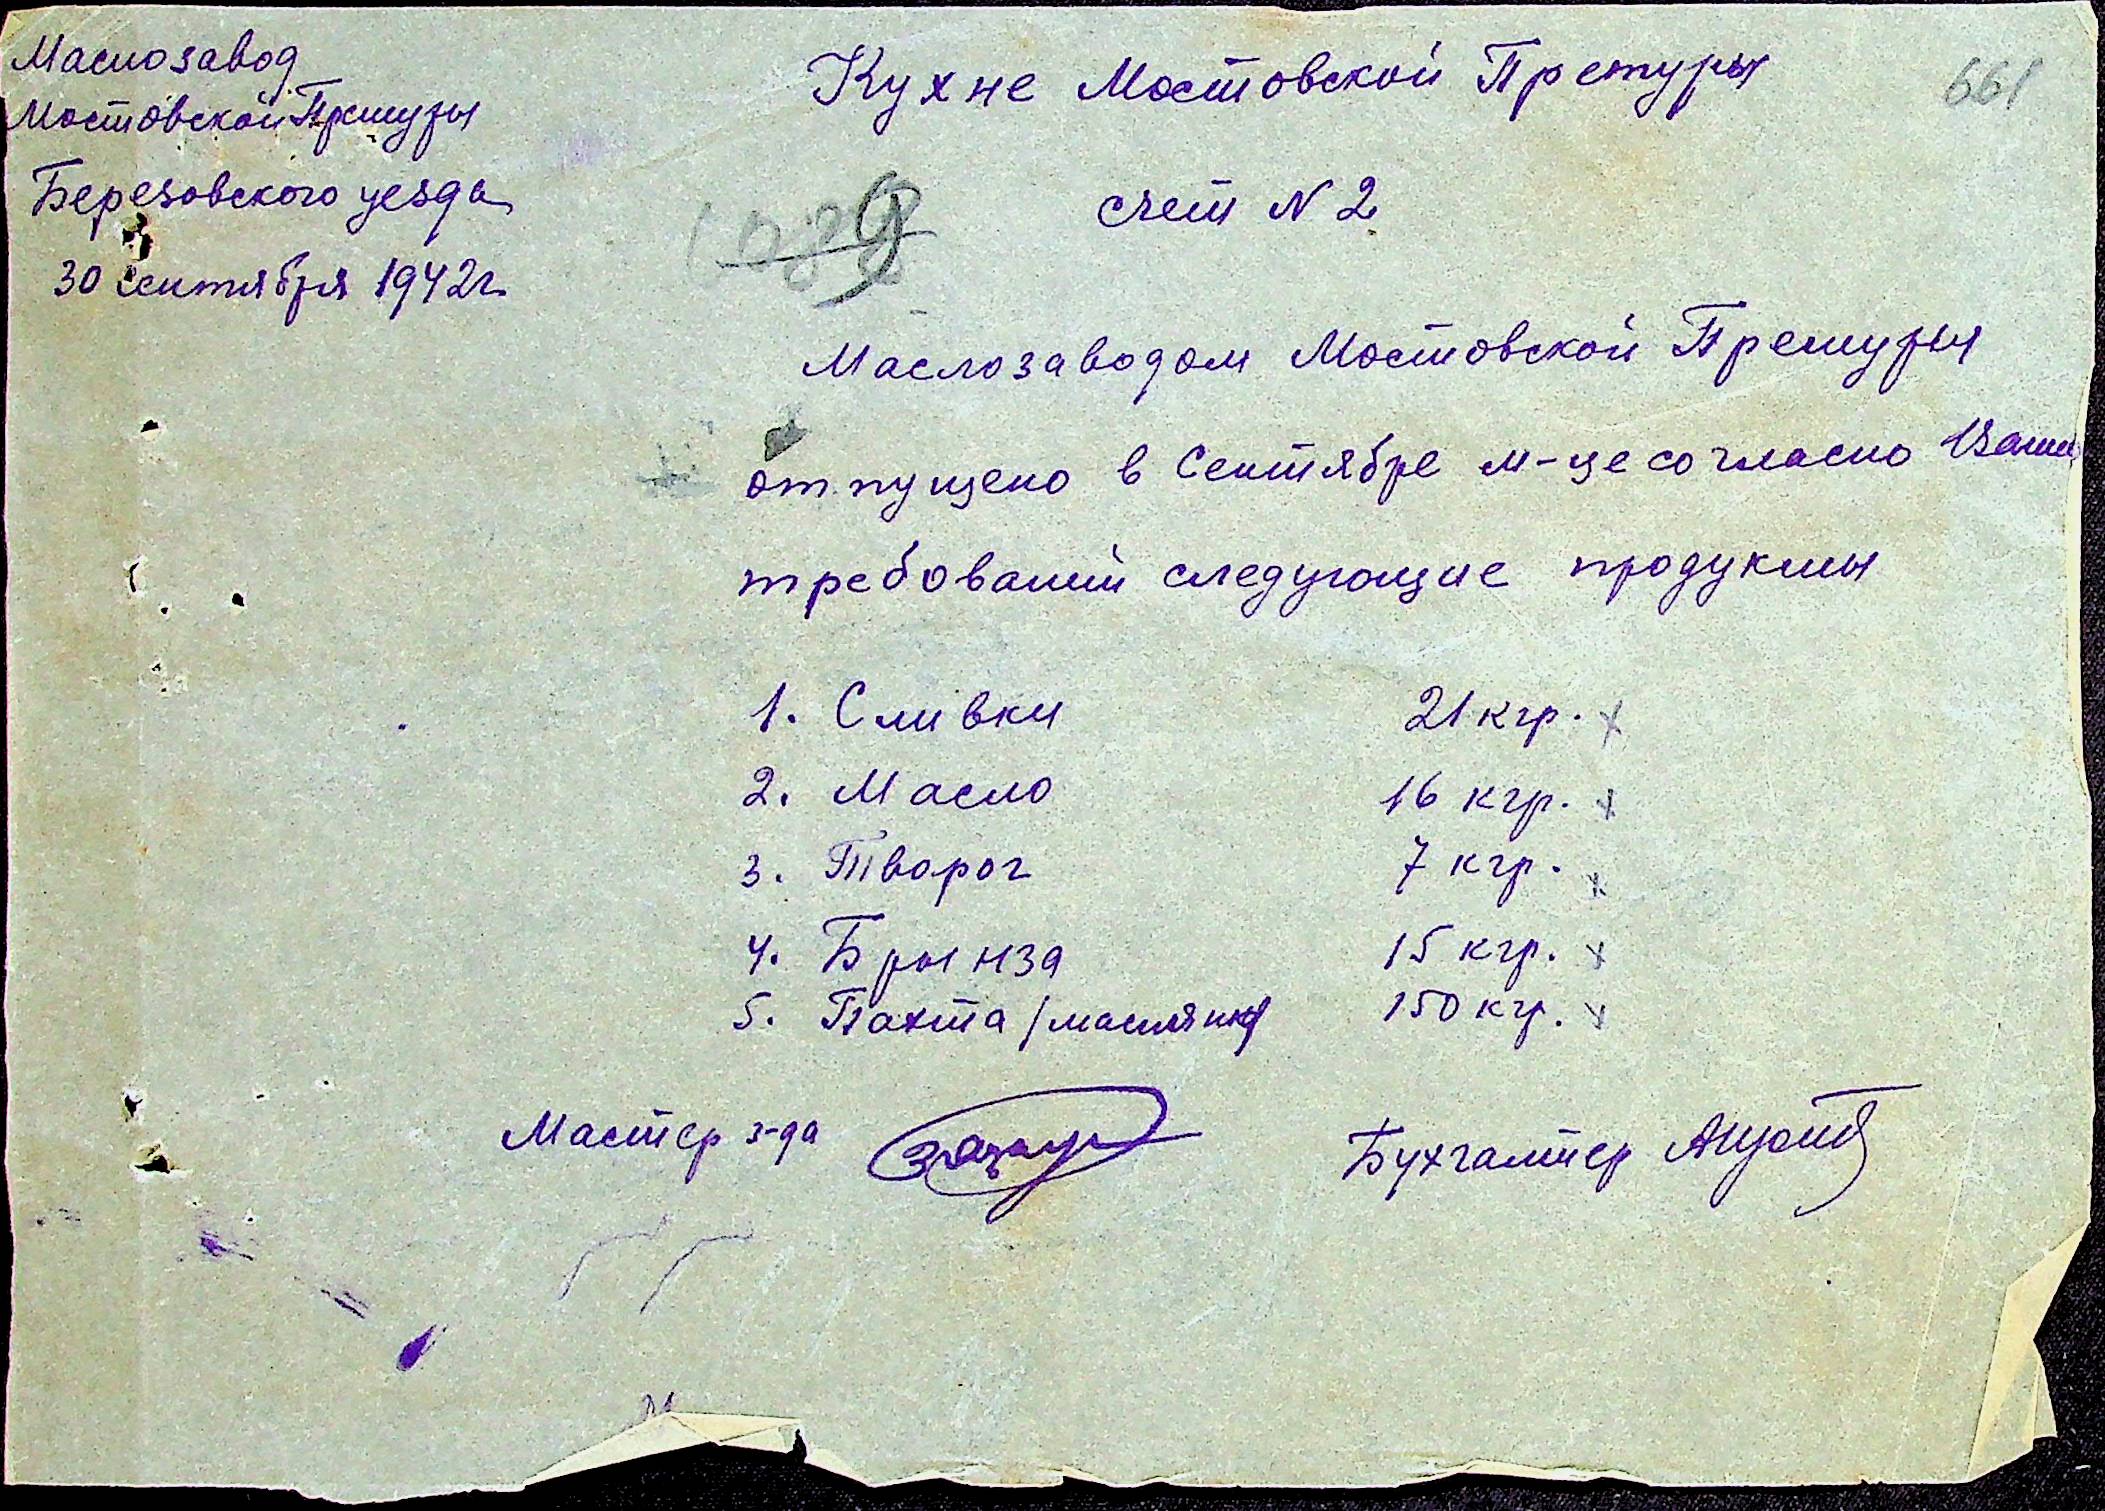 Маслозавод
Мостовской Претуры
Березовского уезда
30 сентября 1942 г.
Кухне Мостовской Претуры
661
счет N 2
Маслозаводом Мостовской Претуры
отпущено в Сентябре м-це согласно Ваши
требований следующие продукты
1. Сливки 21 кгр. х
2. Масло 16 кгр. х
3. Творог 7 кгр. х
4. Брынза 15 кгр. х
5. Пахта /маслянка/ 150 кгр. х
Мастер з-да
Бухгалтер